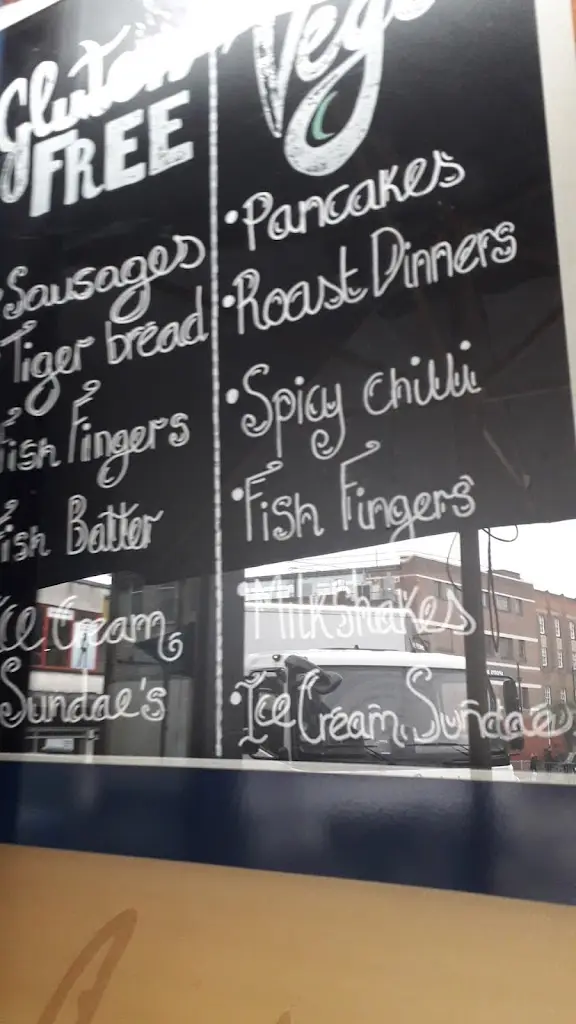 Gluten
FREE
Sausages
Tiger bread
Fish Fingers
Fish Batter
Ice Cream
Sundae's
Vega
• Pancakes
• Roast Dinners
• Spicy chilli
• Fish Fingers
• Milkshakes
• Ice Cream Sundaes